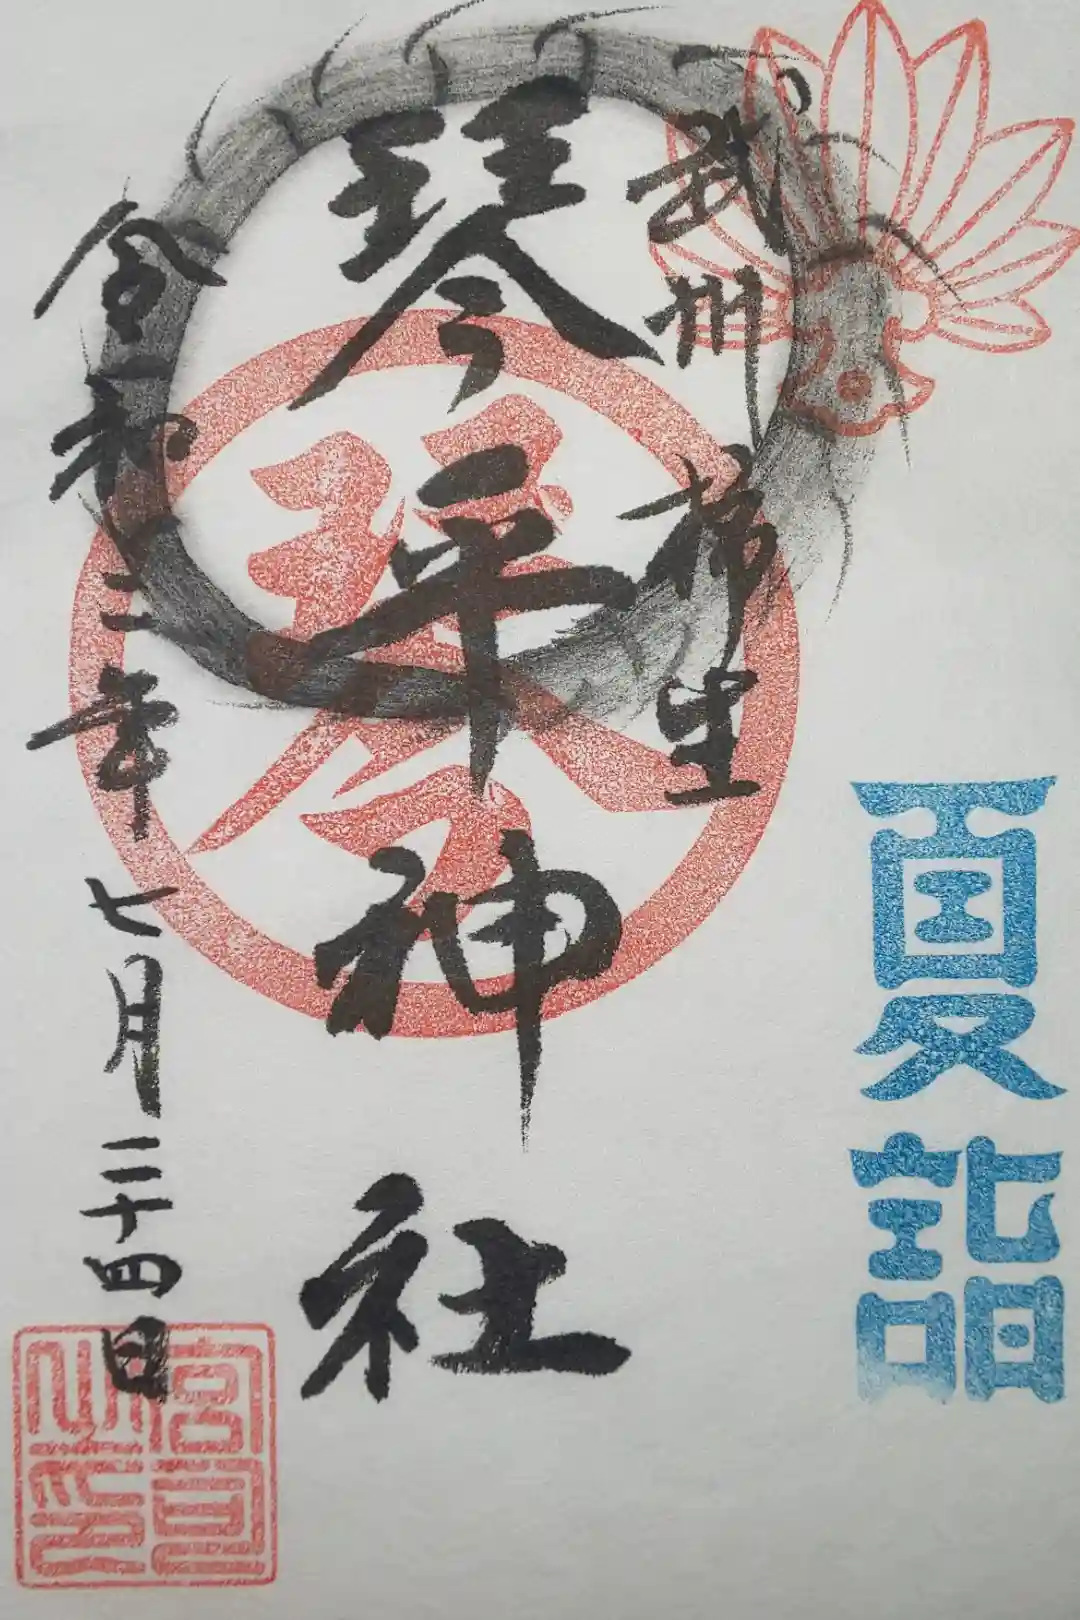 夏詣
武州柿生
琴平神社
令和三年七月二十四日